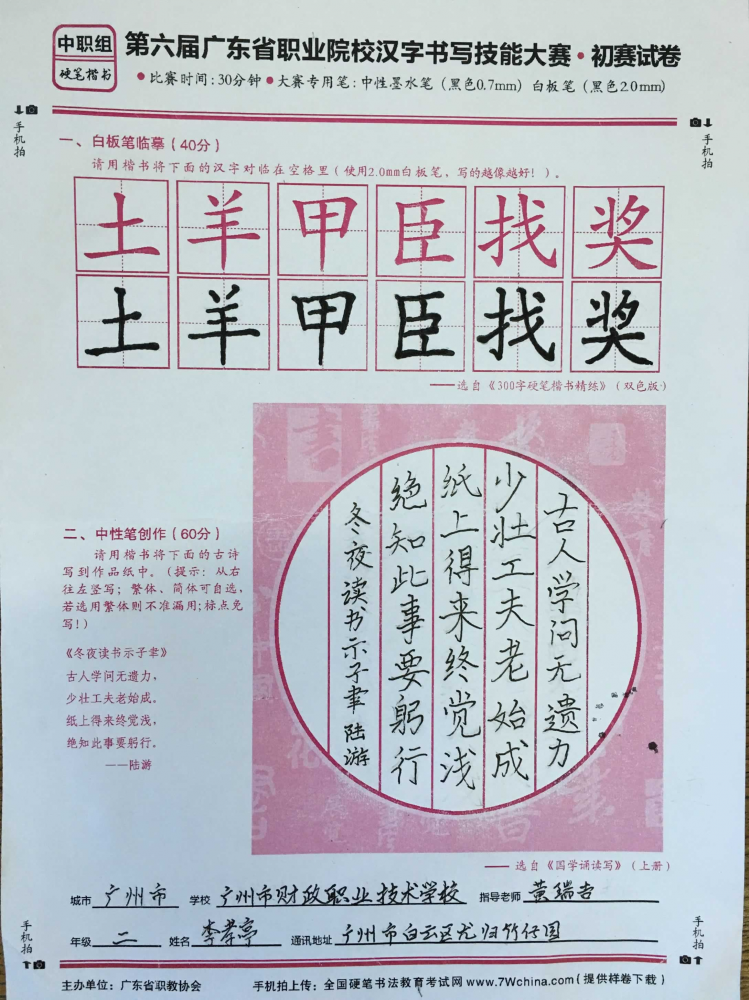 中职组
硬笔楷书
第六届广东省职业院校汉字书写技能大赛·初赛试卷
●比赛时间:30分钟●大赛专用笔:中性墨水笔(黑色0.7mm) 白板笔(黑色2.0mm)
手机拍
手机拍
一、白板笔临摹(40分)
请用楷书将下面的汉字对临在空格里(使用2.0mm白板笔,写的越像越好!)。
土羊甲臣找奖
土羊甲臣找奖
——选自《300字硬笔楷书精练》(双色版)
二、中性笔创作(60分)
请用楷书将下面的古诗
写到作品纸中。(提示:从右
往左竖写;繁体、简体可自选,
若选用繁体则不准漏用;标点免
写!)
《冬夜读书示子聿》
古人学问无遗力,
少壮工夫老始成。
纸上得来终觉浅,
绝知此事要躬行。
——陆游
古人学问无遗力
少壮工夫老始成
纸上得来终觉浅
绝知此事要躬行
冬夜读书示子聿 陆游
——选自《国学诵读写》(上册)
城市 广州市 学校 广州市财政职业技术学校 指导老师 黄瑞吉
年级 二 姓名 李孝亭 通讯地址 广州市白云区龙归竹仔园
手机拍
手机拍
主办单位:广东省职教协会 手机拍上传:全国硬笔书法教育考试网 www.7Wchina.com(提供样卷下载)